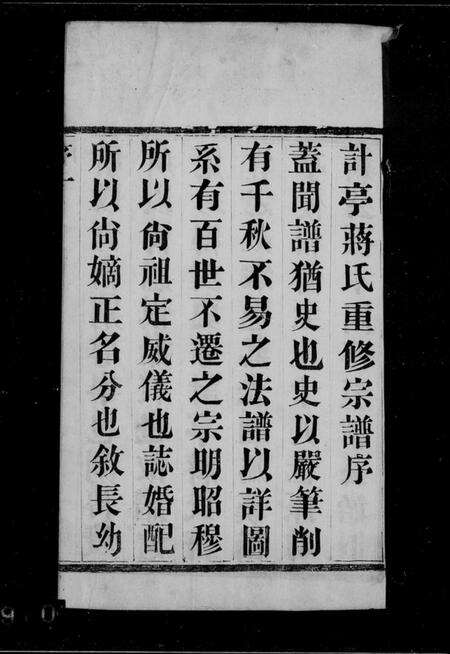 計亭蔣氏重修宗譜序
蓋聞譜猶史也史以嚴筆削
有千秋不易之法譜以詳圖
系有百世不遷之宗明昭穆
所以尙祖定威儀也誌婚配
所以尙嫡正名分也敘長幼
序一
90